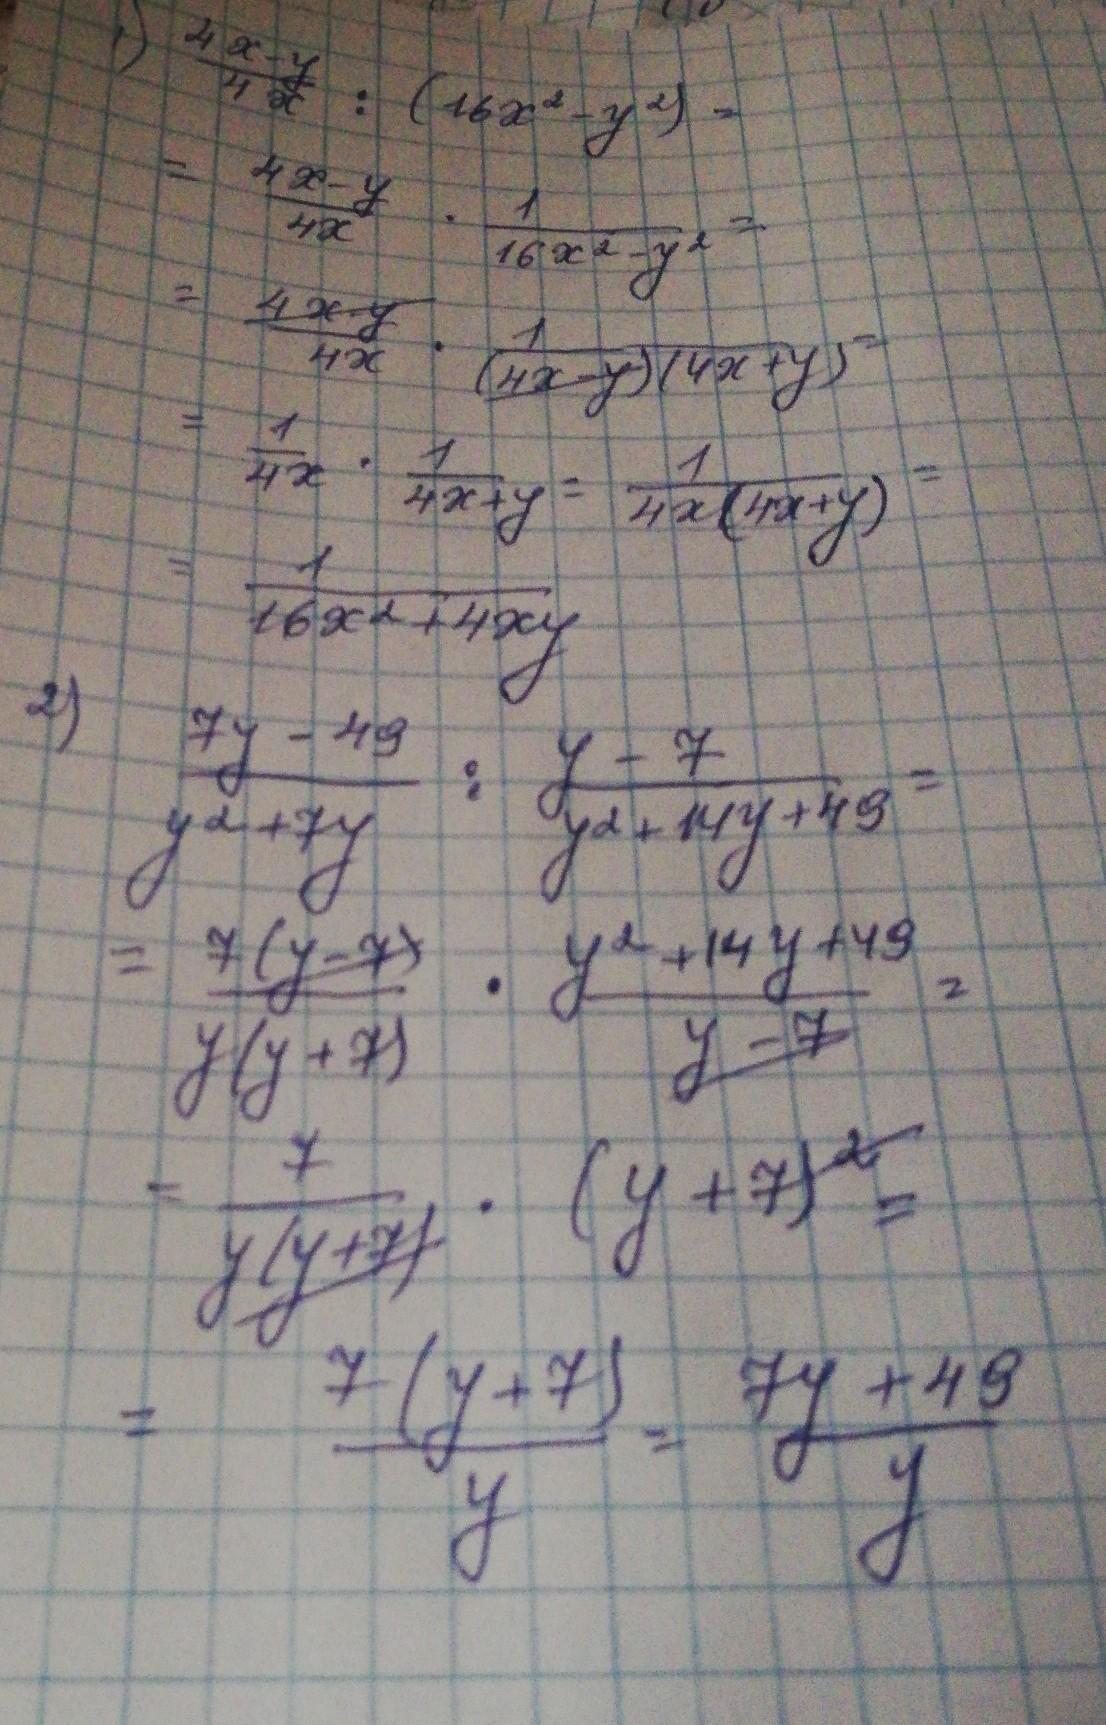 1) (4x-y)/(4x) : (16x² - y²) =
= (4x-y)/(4x) · 1/(16x² - y²) =
= (4x-y)/(4x) · 1/((4x-y)(4x+y)) =
= 1/(4x) · 1/(4x+y) = 1/(4x(4x+y)) =
= 1/(16x² + 4xy)
2) (7y - 49)/(y² + 7y) : (y - 7)/(y² + 14y + 49) =
= 7(y-7)/(y(y+7)) · (y² + 14y + 49)/(y - 7) =
= 7/(y(y+7)) · (y + 7)² =
= 7(y+7)/y = (7y + 49)/y